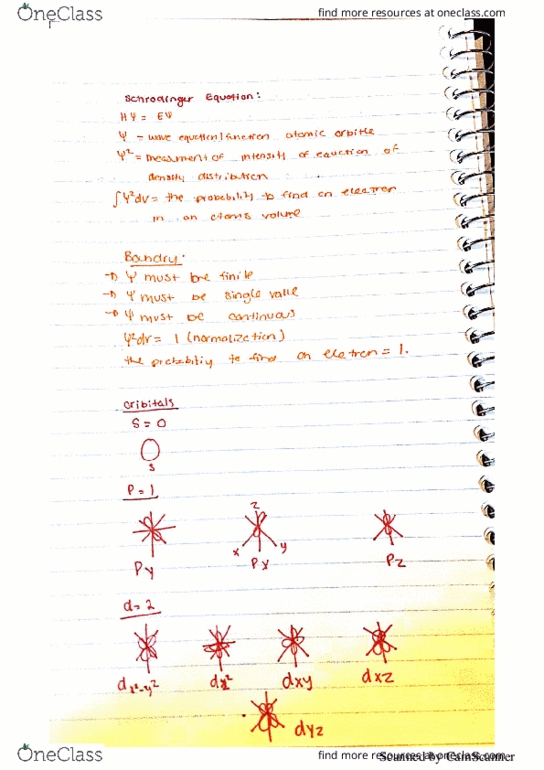 OneClass
find more resources at oneclass.com
Schrodinger Equation:
HΨ = EΨ
Ψ = wave equation/function atomic orbitle
Ψ² = measurment of intensity of equction of
density distribution
∫Ψ²dv = the probability to find an electron
in an atoms volume
Boundry:
→ Ψ must be finite
→ Ψ must be single value
→ Ψ must be continuous
Ψ²dv = 1 (normalization)
the probability to find an eletron = 1.
Oribitals
S = 0
s
P = 1
z
x y
Py Px Pz
d = 2
dx²-y² dz² dxy dxz
dyz
OneClass
find more resources at oneclass.com
Scanned by CamScanner